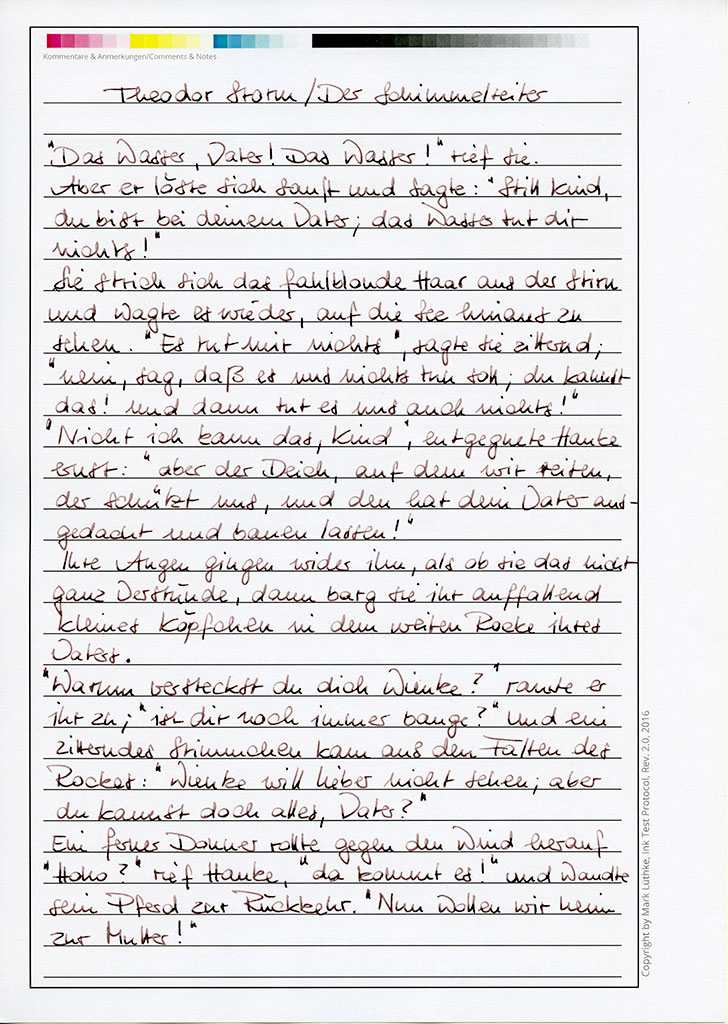 Kommentare & Anmerkungen/Comments & Notes
Theodor Storm / Der Schimmelreiter
"Das Wasser, Vater! Das Wasser!" rief sie.
Aber er löste sich sanft und sagte: "Still Kind,
du bist bei deinem Vater; das Wasser tut dir
nichts!"
Sie strich sich das fahlblonde Haar aus der Stirn
und wagte es wieder, auf die See hinaus zu
sehen. "Es tut mir nichts", sagte sie zitternd;
"nein, sag, daß es uns nichts tun soll; du kannst
das! und dann tut es uns auch nichts!"
"Nicht ich kann das, Kind", entgegnete Hauke
ernst: "aber der Deich, auf dem wir reiten,
der schützt uns, und den hat dein Vater aus-
gedacht und bauen lassen!"
Ihre Augen gingen wider ihn, als ob sie das nicht
ganz Verstünde, dann barg sie ihr auffallend
kleines Köpfchen in dem weiten Rocke ihres
Vaters.
"Warum versteckst du dich Wienke?" raunte er
ihr zu; "ist dir noch immer bange?" Und ein
zitterndes Stimmchen kam aus den Falten des
Rockes: "Wienke will lieber nicht sehen; aber
du kannst doch alles, Vater?"
Ein ferner Donner rollte gegen den Wind herauf
"Hoho?" rief Hauke, "da kommt es!" und wandte
sein Pferd zur Rückkehr. "Nun wollen wir heim
zur Mutter!"
Copyright by Mark Lüthke, Ink Test Protocol, Rev. 2.0, 2016